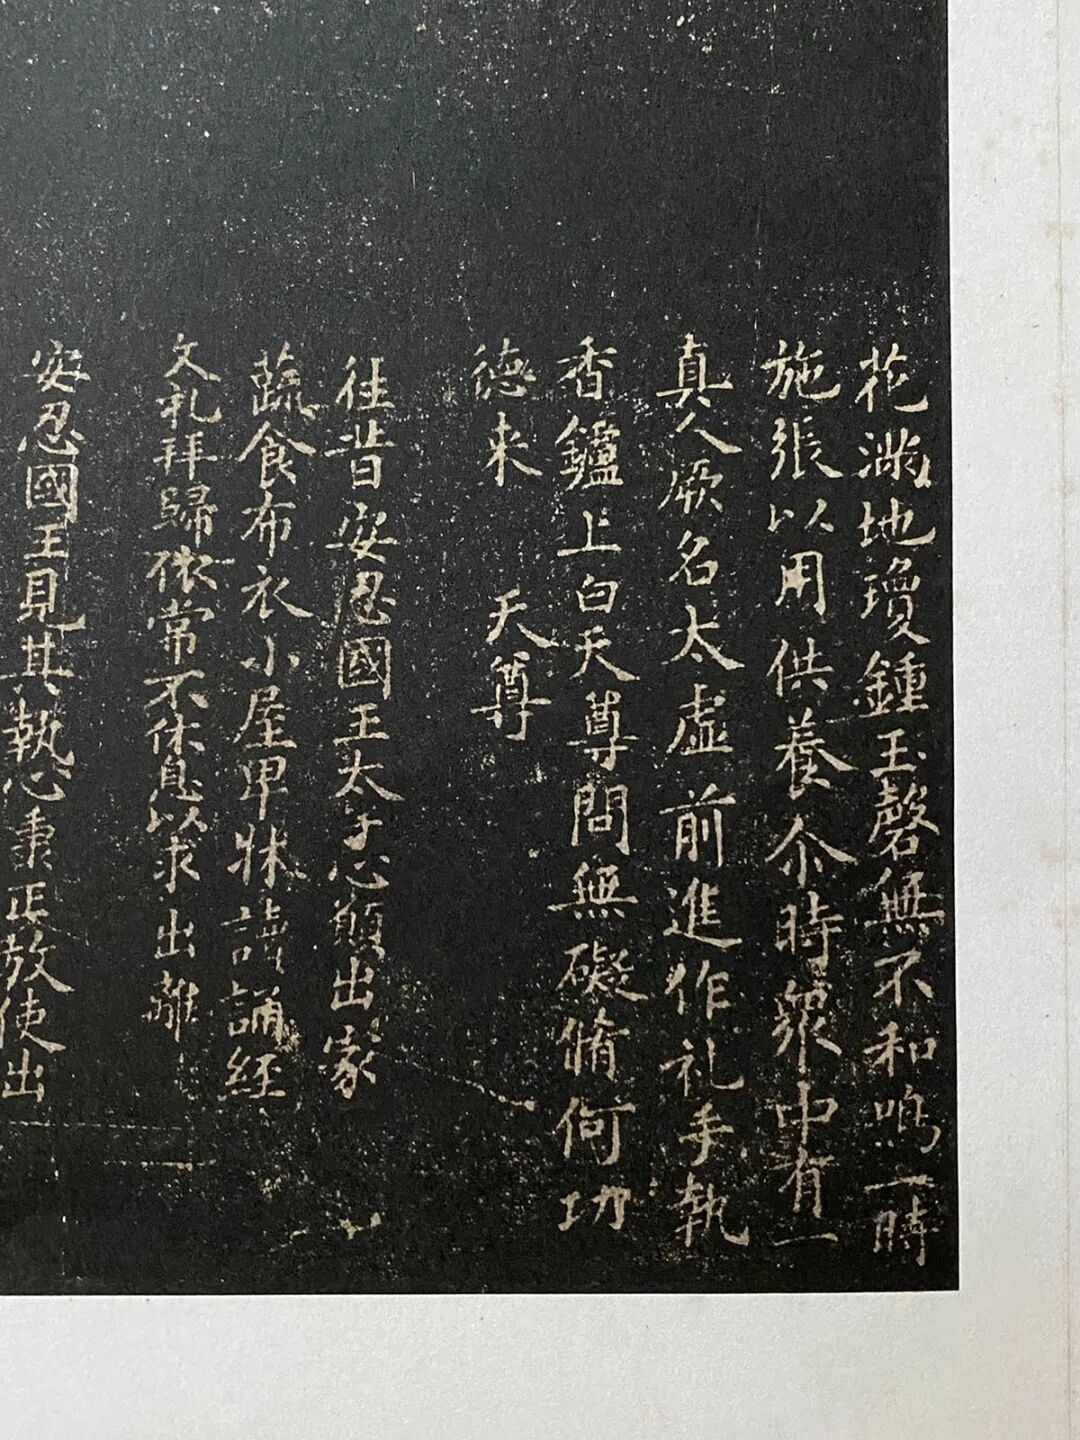 花满地瓊鍾玉磬無不和鳴一時
施張以用供養尒時眾中有一
真人厥名太虛前進作礼手執
香鑪上白天尊問無礙脩何功
德来　天尊
往昔安忍國王太子心願出家
蔬食布衣小屋甲牀讀誦經
文礼拜歸依常不休息以求出離
安忍國王見其執心秉正放使出